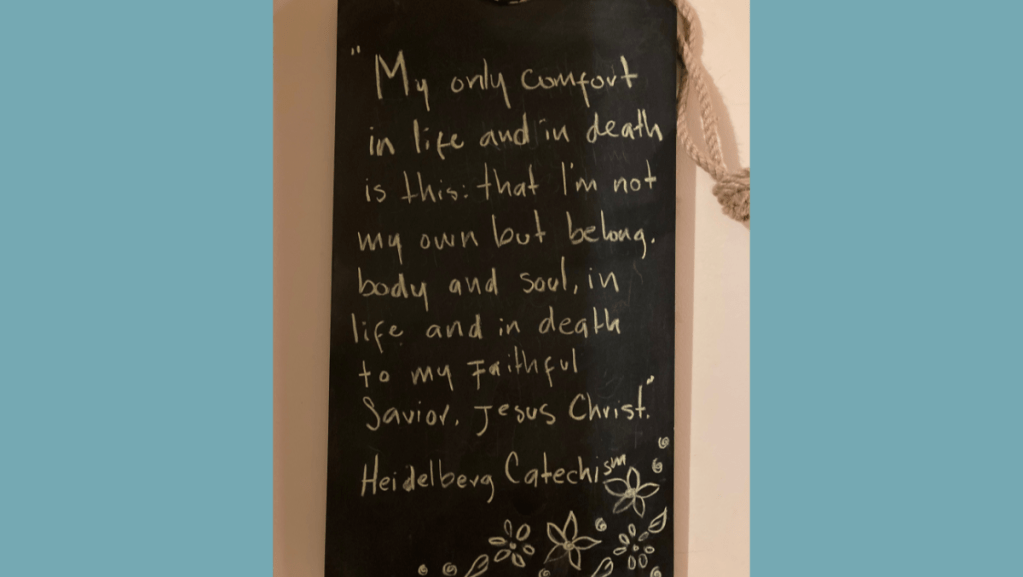 "My only comfort
in life and in death
is this: that I'm not
my own but belong.
body and soul, in
life and in death
to my Faithful
Savior, Jesus Christ."
Heidelberg Catechism